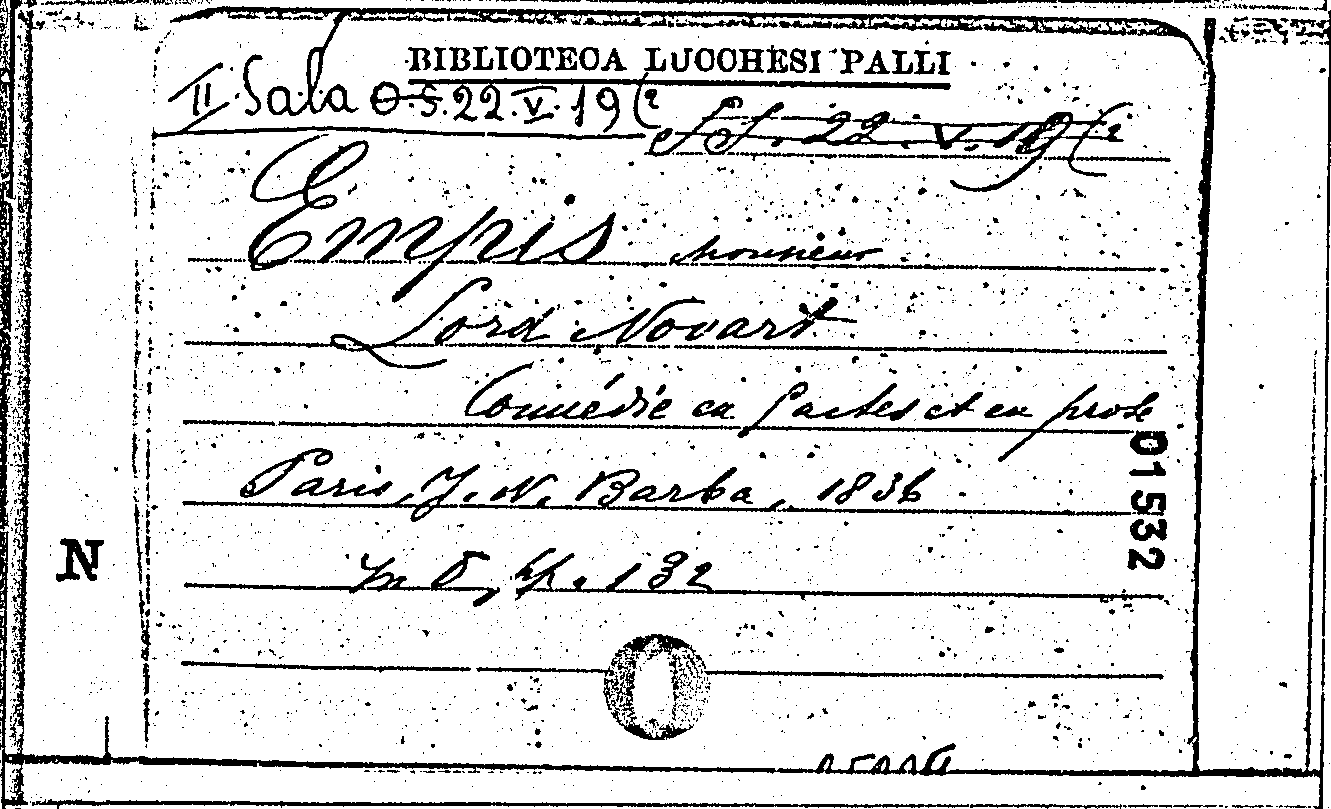 BIBLIOTECA LUCCHESI PALLI
II Sala O.S. 22. V. 19(2
SS. 22. V. 19(2
Empis monsieur
Lord Novart
Comédie en 5 actes et en prose
Paris, J. N. Barba, 1836
In 8, pp. 132
01532
N